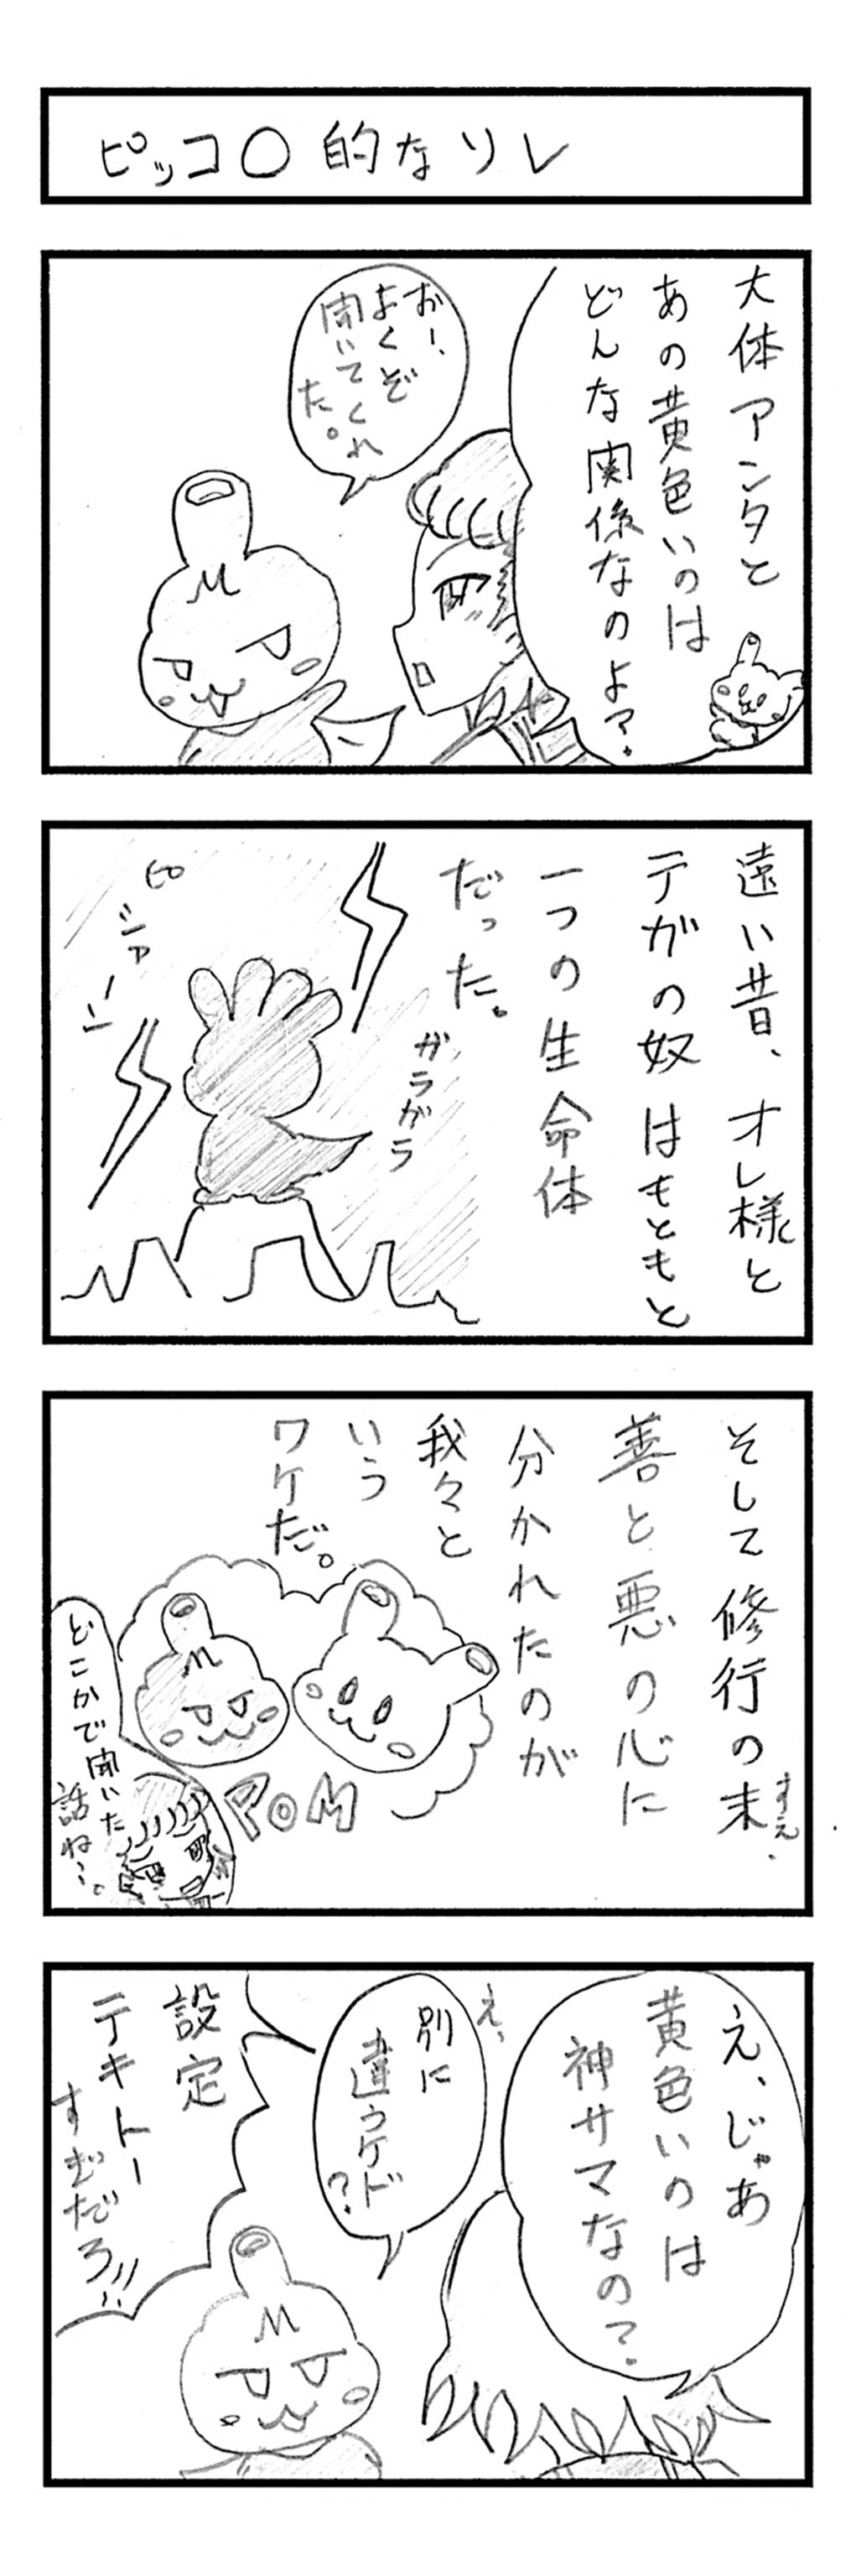 ピッコ〇的なソレ
大体アンタと
あの黄色いのは
どんな関係なのよ?
おー、
よくぞ
聞いてくれ
た。
遠い昔、オレ様と
テガの奴はもともと
一つの生命体
だった。
ガラガラ
ピシャーン
そして修行の末
すえ、
善と悪の心に
分かれたのが
我々と
いう
ワケだ。
POM
どこかで聞いた
話ね〜。
え、じゃあ
黄色いのは
神サマなの?
え、
別に
違うケド
?
設定
テキトー
すぎだろ!!